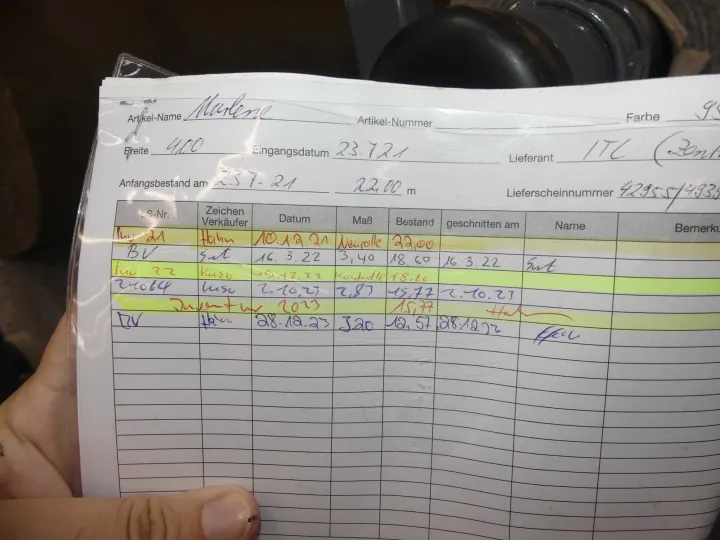 Artikel-Name Marlene Artikel-Nummer Farbe
Breite 400 Eingangsdatum 23.7.21 Lieferant ITL
Anfangsbestand am 23.7.21 22,00 m Lieferscheinnummer 42955/4939
LS-Nr. Zeichen Verkäufer Datum Maß Bestand geschnitten am Name Bemerku
Inv 21 Hahn 10.12.21 Neurolle 22,00
BV Gut 16.3.22 3,40 18,60 16.3.22 Gut
Inv 22 15.12.22 Kontrolle 18.60
21064 2.10.23 2,83 15,77 2.10.23
Inventur 2023 15,77
BV 28.12.23 3,20 12,57